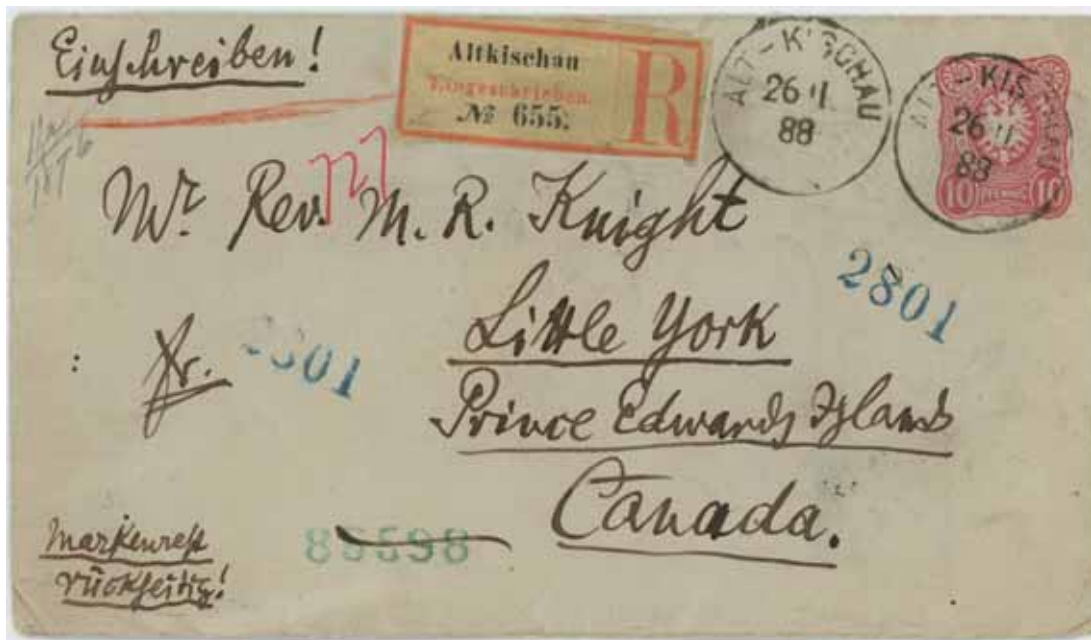 Einschreiben!
Altkischau
Eingeschrieben.
№ 655.
R
ALT-KISCHAU
26 11
88
ALT-KISCHAU
26 11
88
10 PFENNIG 10
727
Mr. Rev. M. R. Knight
2801
Little York
fr.
2801
Prince Edwards Island
Canada.
Markenrest
rückseitig!